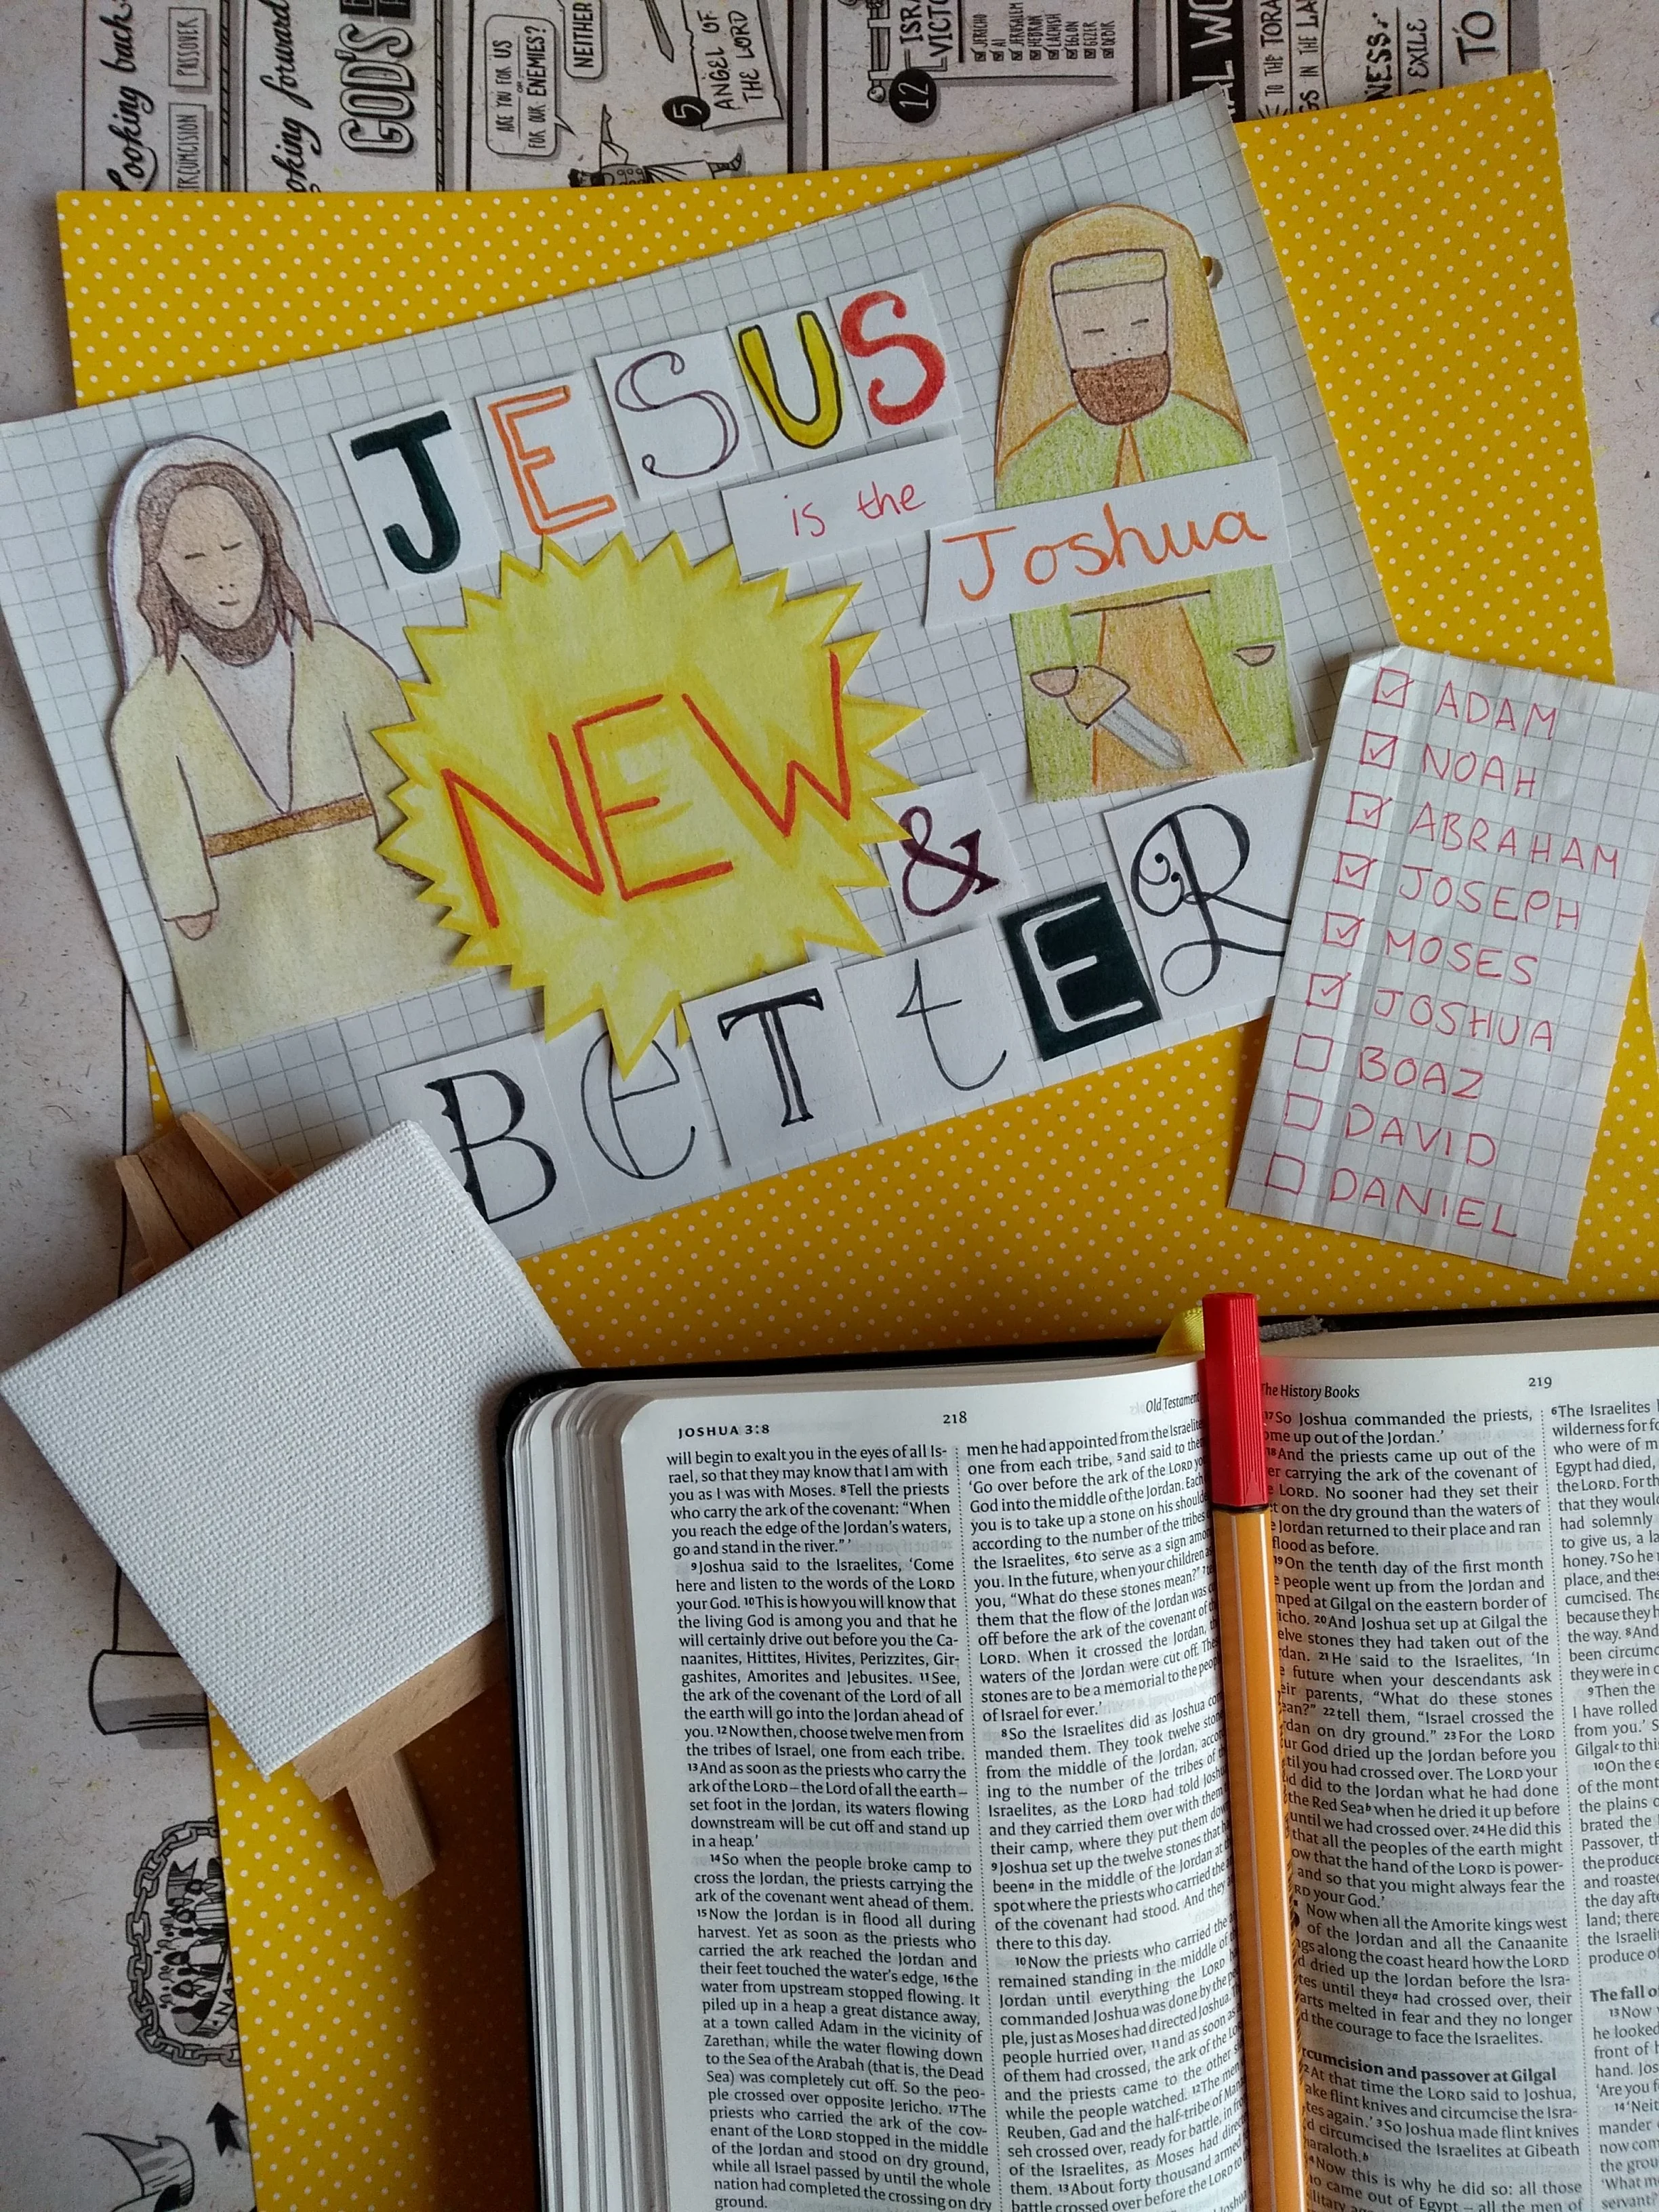 Looking back
PASSOVER
GOD'S
ARE YOU FOR US
OR
FOR OUR ENEMIES?
NEITHER
5
ANGEL OF
THE LORD
12
JERICHO
AI
JERUSALEM
HEBRON
EGLON
GEZER
DEBIR
TO THE TORA
EXILE
TO
JESUS
is the
Joshua
NEW
&
BeTtER
ADAM
NOAH
ABRAHAM
JOSEPH
MOSES
JOSHUA
BOAZ
DAVID
DANIEL
JOSHUA 3:8
218
Old Testament
will begin to exalt you in the eyes of all Is-
rael, so that they may know that I am with
you as I was with Moses. 8Tell the priests
who carry the ark of the covenant: “When
you reach the edge of the Jordan’s waters,
go and stand in the river.” ’
9Joshua said to the Israelites, ‘Come
here and listen to the words of the LORD
your God. 10This is how you will know that
the living God is among you and that he
will certainly drive out before you the Ca-
naanites, Hittites, Hivites, Perizzites, Gir-
gashites, Amorites and Jebusites. 11See,
the ark of the covenant of the Lord of all
the earth will go into the Jordan ahead of
you. 12Now then, choose twelve men from
the tribes of Israel, one from each tribe.
13And as soon as the priests who carry the
ark of the LORD – the Lord of all the earth –
set foot in the Jordan, its waters flowing
downstream will be cut off and stand up
in a heap.’
14So when the people broke camp to
cross the Jordan, the priests carrying the
ark of the covenant went ahead of them.
15Now the Jordan is in flood all during
harvest. Yet as soon as the priests who
carried the ark reached the Jordan and
their feet touched the water’s edge, 16the
water from upstream stopped flowing. It
piled up in a heap a great distance away,
at a town called Adam in the vicinity of
Zarethan, while the water flowing down
to the Sea of the Arabah (that is, the Dead
Sea) was completely cut off. So the peo-
ple crossed over opposite Jericho. 17The
priests who carried the ark of the cov-
enant of the LORD stopped in the middle
of the Jordan and stood on dry ground,
while all Israel passed by until the whole
nation had completed the crossing on dry
ground.
men he had appointed from the Israelites,
one from each tribe, 5and said to them,
‘Go over before the ark of the LORD
God into the middle of the Jordan. Each
you is to take up a stone on his
according to the number of the tribes
the Israelites, 6to serve as a sign among
you. In the future, when your children
you, “What do these stones mean?”
them that the flow of the Jordan was
off before the ark of the covenant of
LORD. When it crossed the Jordan,
waters of the Jordan were cut off.
stones are to be a memorial to the people
of Israel for ever.’
8So the Israelites did as Joshua
manded them. They took twelve
from the middle of the Jordan,
ing to the number of the tribes of
Israelites, as the LORD had told
and they carried them over with them
their camp, where they put them
9Joshua set up the twelve stones that
beena in the middle of the Jordan at
spot where the priests who carried the
of the covenant had stood. And they
there to this day.
10Now the priests who carried the
remained standing in the middle of
Jordan until everything the LORD
commanded Joshua was done by the
ple, just as Moses had directed Joshua.
people hurried over, 11and as soon as
of them had crossed, the ark of the
and the priests came to the other
while the people watched. 12The men
Reuben, Gad and the half-tribe of
seh crossed over, ready for battle, in
of the Israelites, as Moses had
them. 13About forty thousand armed
battle crossed over before the LORD to
The History Books
219
17So Joshua commanded the priests,
up out of the Jordan.’
18And the priests came up out of the
carrying the ark of the covenant of
LORD. No sooner had they set their
on the dry ground than the waters of
Jordan returned to their place and ran
flood as before.
19On the tenth day of the first month
people went up from the Jordan and
at Gilgal on the eastern border of
20And Joshua set up at Gilgal the
stones they had taken out of the
21He said to the Israelites, ‘In
future when your descendants ask
parents, “What do these stones
22tell them, “Israel crossed the
on dry ground.” 23For the LORD
God dried up the Jordan before you
you had crossed over. The LORD your
did to the Jordan what he had done
the Red Seab when he dried it up before
until we had crossed over. 24He did this
that all the peoples of the earth might
that the hand of the LORD is power-
and so that you might always fear the
your God.’
Now when all the Amorite kings west
of the Jordan and all the Canaanite
along the coast heard how the LORD
dried up the Jordan before the Isra-
until theya had crossed over, their
melted in fear and they no longer
the courage to face the Israelites.
and passover at Gilgal
2At that time the LORD said to Joshua,
flint knives and circumcise the Isra-
again.’ 3So Joshua made flint knives
circumcised the Israelites at Gibeath
haraloth.b
4Now this is why he did so: all those
came out of Egypt – all the men of
6The Israelites
wilderness for
who were of
Egypt had died,
the LORD. For
that they would
had solemnly
to give us, a
honey. 7So he
place, and
because they
the way. 8And
been
they were in
9Then the
I have rolled
from you.’
Gilgalc to this
10On the
of the
the plains
Passover, the
the produce
and roasted
the day
land; there
the
produce of
The fall of
13Now
he looked
front of
hand.
‘Are you
now